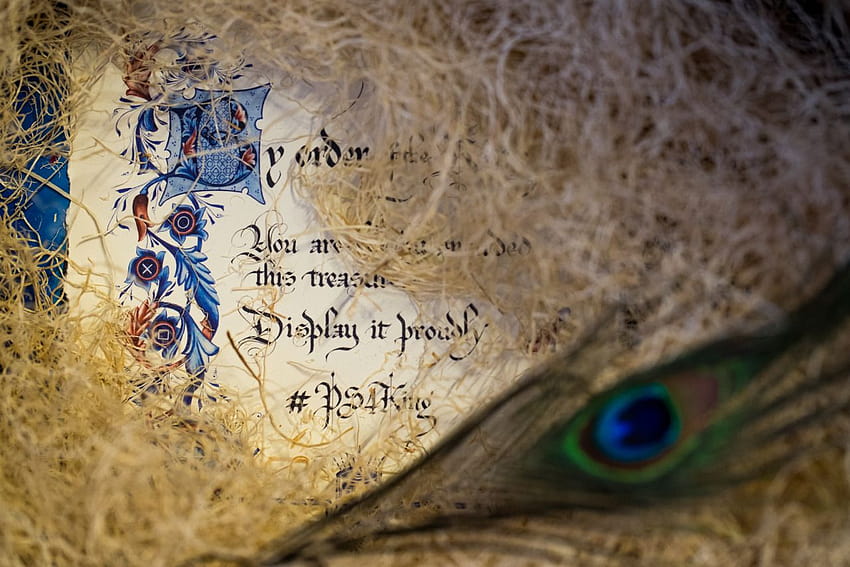 By order the
You are
this treasure
Display it proudly
#PS4King